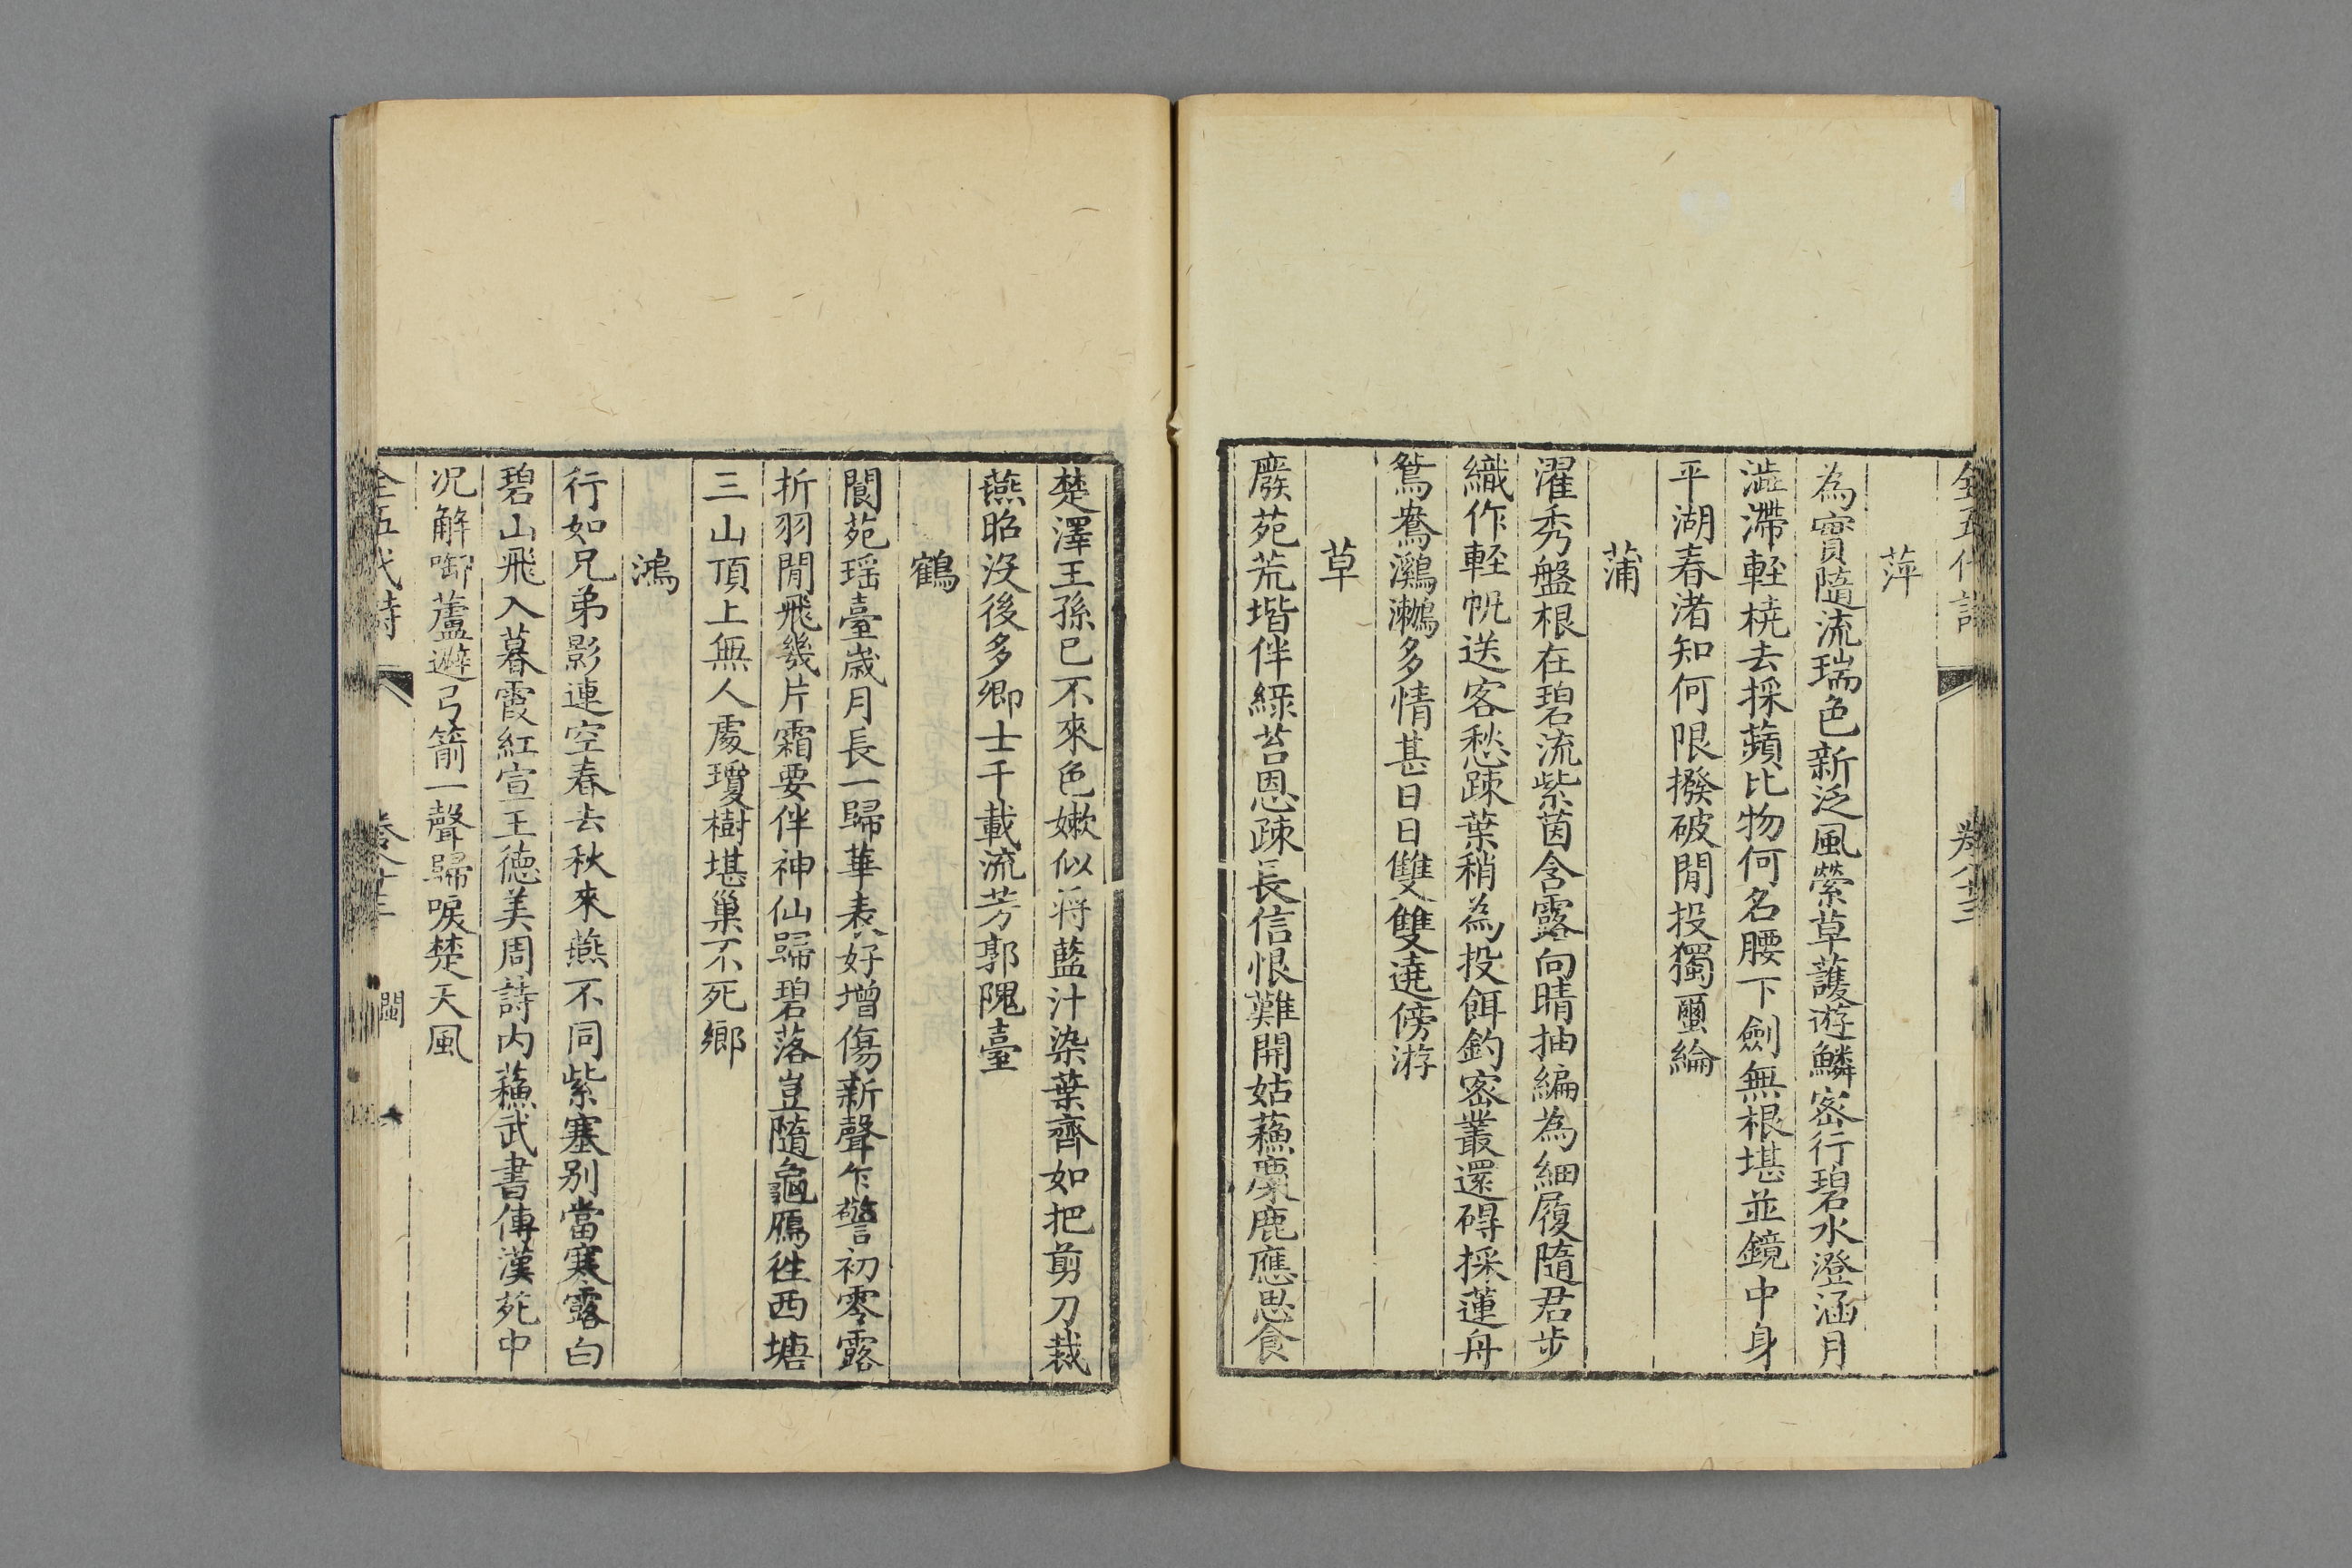 萍
為實隨流瑞色新泛風縈草護遊鱗密行碧水澄涵月
澁滯輕橈去採蘋比物何名腰下劍無根堪並鏡中身
平湖春渚知何限撥破閒投獨璽綸
蒲
濯秀盤根在碧流紫茵含露向晴抽編為細履隨君步
織作輕帆送客愁疎葉稍為投餌釣密叢還碍採蓮舟
鴛鴦鸂鶒多情甚日日雙雙遶傍游
草
廢苑荒堦伴綠苔恩疎長信恨難開姑蘓麋鹿應思食
楚澤王孫已不來色嫩似將藍汁染葉齊如把剪刀裁
燕昭沒後多卿士千載流芳郭隗臺
鶴
閬苑瑤臺歲月長一歸華表好增傷新聲乍警初零露
折羽閒飛幾片霜要伴神仙歸碧落豈隨龜鴈徃西塘
三山頂上無人處瓊樹堪巢不死鄉
鴻
行如兄弟影連空春去秋來燕不同紫塞别當寒露白
碧山飛入暮霞紅宣王德美周詩內蘓武書傳漢苑中
况解㗸蘆避弓箭一聲歸唳楚天風
全五代詩 閩